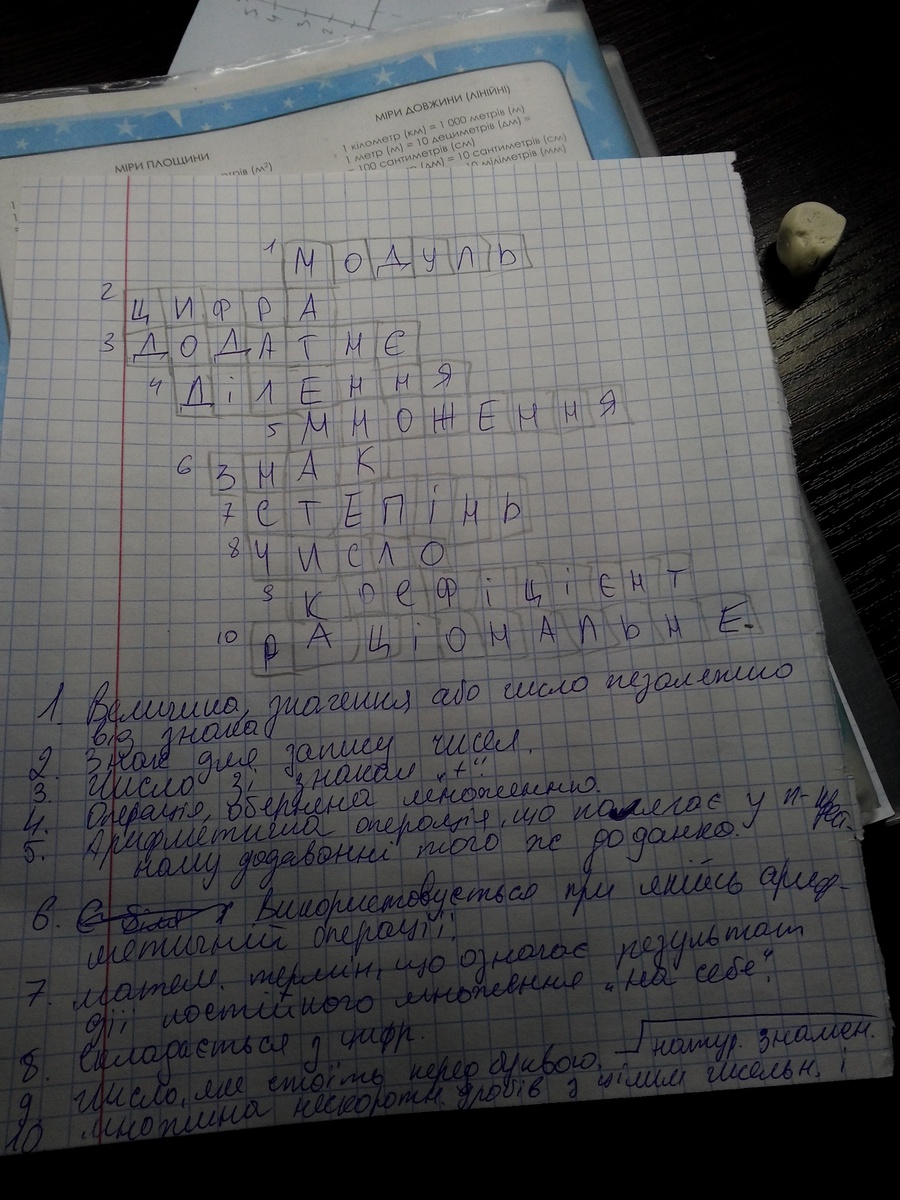 МІРИ ДОВЖИНИ (ЛІНІЙНІ)
1 кілометр (км) = 1 000 метрів (м)
1 метр (м) = 10 дециметрів (дм) =
= 100 сантиметрів (см)
(дм) = 10 сантиметрів (см)
10 міліметрів (мм)
МІРИ ПЛОЩИНИ
(м²)
1 МОДУЛЬ
2 ЦИФРА
3 ДОДАТНЄ
4 ДіЛЕННЯ
5 МНОЖЕННЯ
6 ЗНАК
7 СТЕПІНЬ
8 ЧИСЛО
9 КОЕФіЦіЄНТ
10 РАЦіОНАЛЬНЕ.
1. Величина, значення або число незалежно
від знака
2. Знак для запису чисел.
3. Число зі знаком „+".
4. Операція, обернена множенню.
5. Арифметична операція, що полягає у n-
ному додаванні того ж доданка.
6. Використовується при якійсь ариф-
метичній операції.
7. матем. термін, що означає результат
дії постійного множення „на себе".
8. Складається з цифр.
9 Число, яке стоїть перед буквою.
натур. знамен.
10 множина нескоротн. дробів з цілим чисельн. і